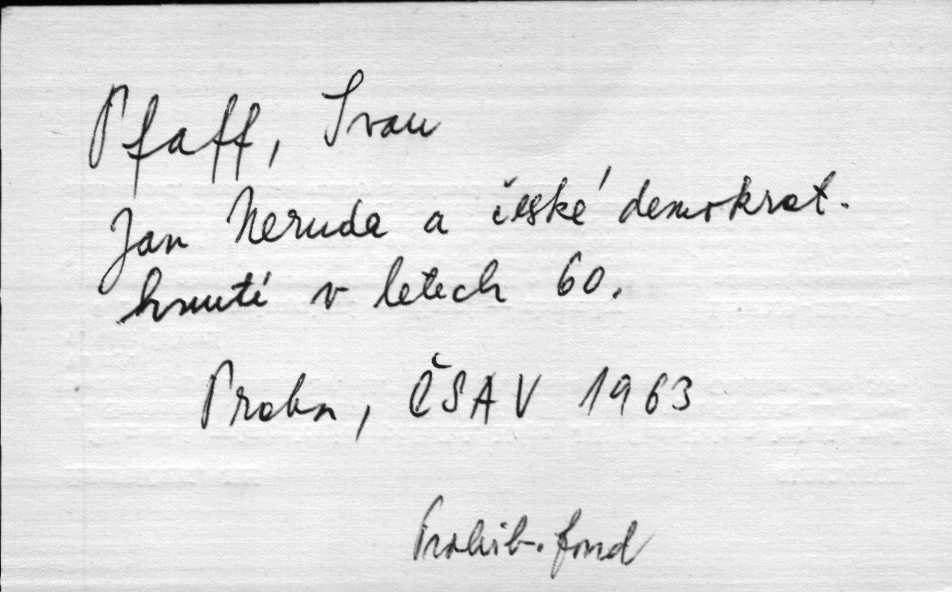 Pfaff, Ivan
Jan Neruda a české demokrat.
hnutí v letech 60.
Praha, ČSAV 1963
Prohib. fond